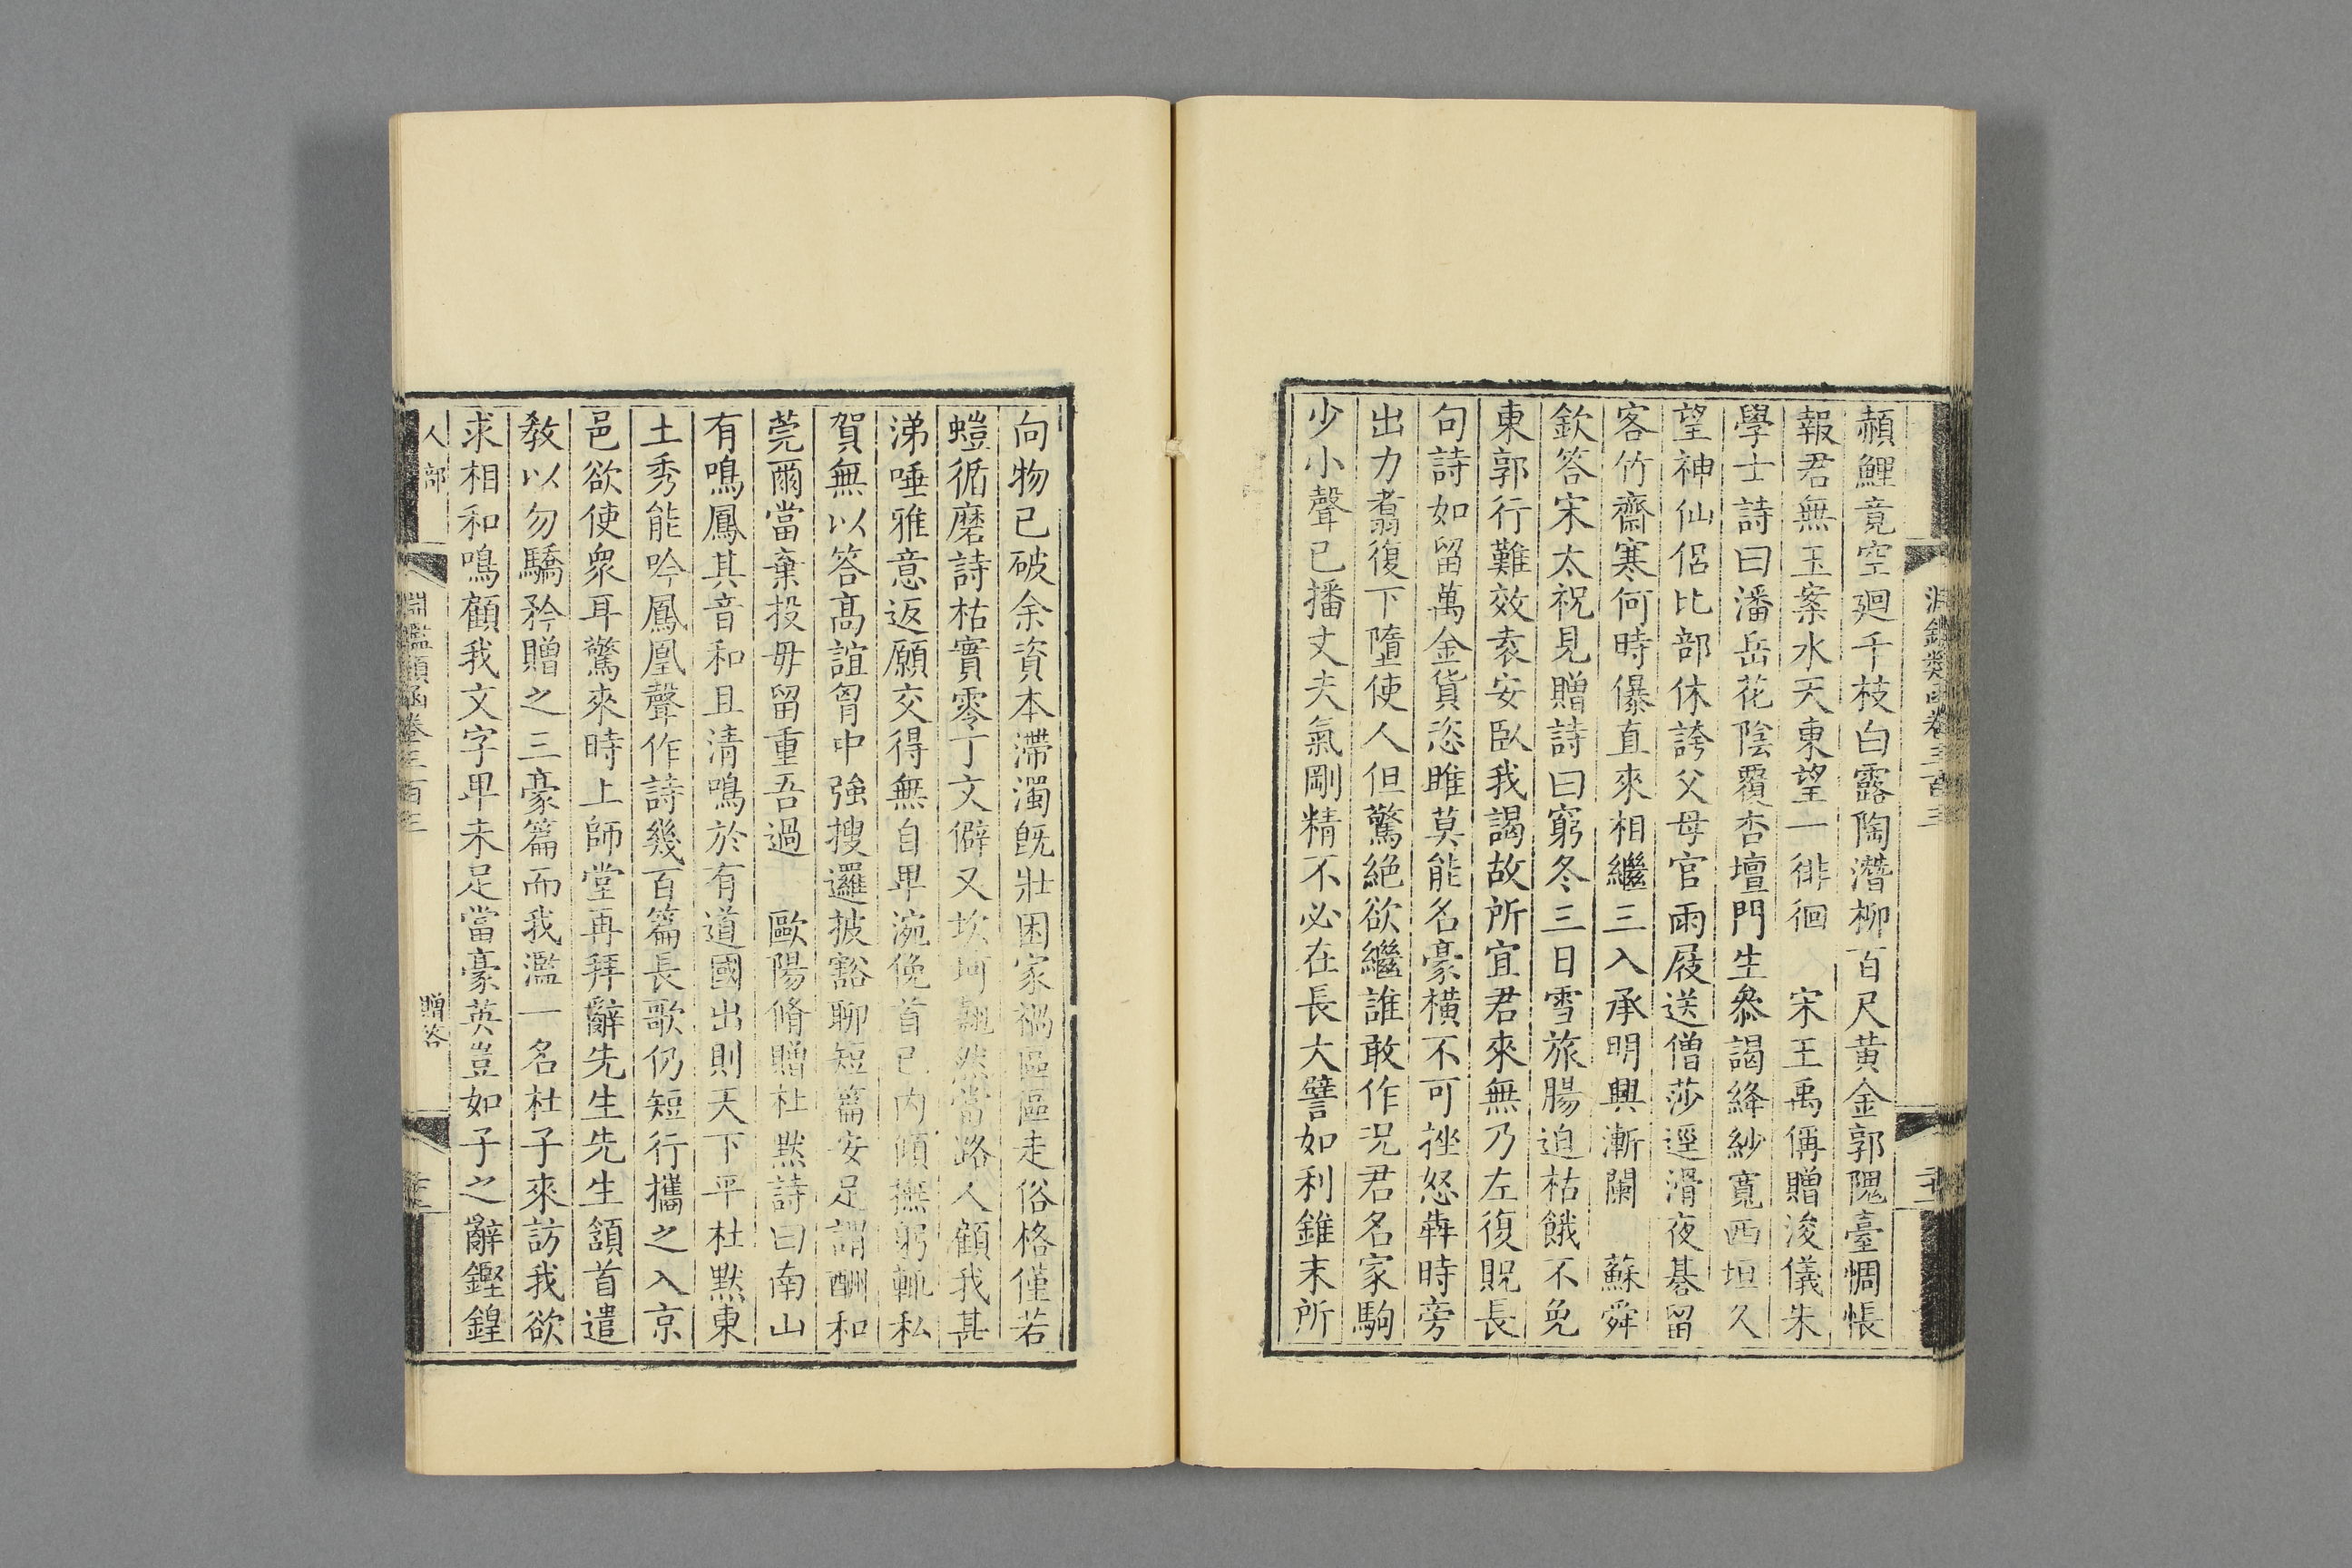 淵鑑類函卷三百三
赬鯉竟空廻千枝白露陶潛柳百尺黄金郭隗臺惆悵
報君無玉案水天東望一徘徊 宋王禹偁贈浚儀朱
學士詩曰潘岳花陰覆杏壇門生叅謁絳紗寛西垣久
望神仙侶比部休誇父母官雨屐送僧莎逕滑夜碁留
客竹齋寒何時儤直來相繼三入承明興漸闌 蘇舜
欽答宋太祝見贈詩曰窮冬三日雪旅腸迫枯餓不免
東郭行難效袁安臥我謁故所宜君來無乃左復貺長
句詩如留萬金貨恣睢莫能名豪橫不可挫怒犇時旁
出力翥復下墮使人但驚絕欲繼誰敢作况君名家駒
少小聲已播丈夫氣剛精不必在長大譬如利錐末所
向物已破余資本滯濁旣壯困家禍區區走俗格僅若
螘循磨詩枯實零丁文僻又坎坷飄然當路人顧我甚
涕唾雅意返願交得無自卑涴俛首已内傾撫躬輒私
賀無以答高誼胷中強搜邏披豁聊短篇安足謂酬和
莞爾當棄投毋留重吾過 歐陽脩贈杜黙詩曰南山
有鳴鳳其音和且清鳴於有道國出則天下平杜黙東
土秀能吟鳳凰聲作詩幾百篇長歌仍短行攜之入京
邑欲使衆耳驚來時上師堂再拜辭先生先生頷首遣
教以勿驕矜贈之三豪篇而我濫一名杜子來訪我欲
求相和鳴顧我文字卑未足當豪英豈如子之辭鏗鍠
人部 淵鑑類函卷三百三 贈答